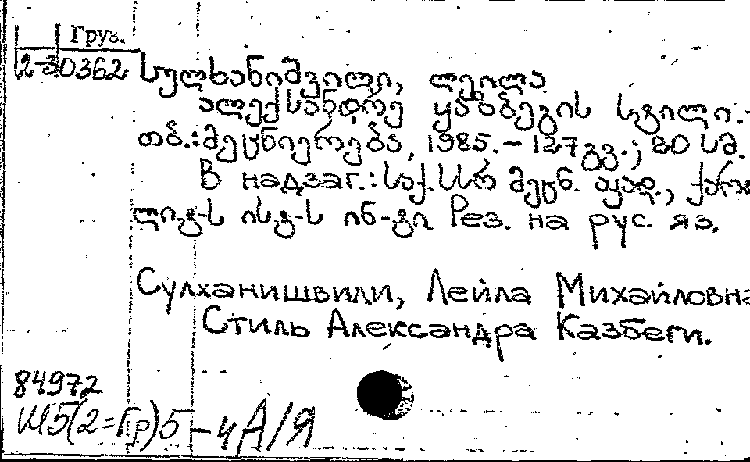 Груз.
2-30362 სულხანიშვილი, ლეილა
ალექსანდრე ყაზბეგის სტილი.-
თბ.: მეცნიერება, 1985.- 127გვ.; 20 სმ.
В надзаг.: საქ.სსრ მეცნ. აკად., ქართ.
ლიტ-ს ისტ-ს ინ-ტი. Рез. на рус. яз.
Сулханишвили, Лейла Михайловна
Стиль Александра Казбеги.
84972
Ш5(2=Гр)5-4 А/Я